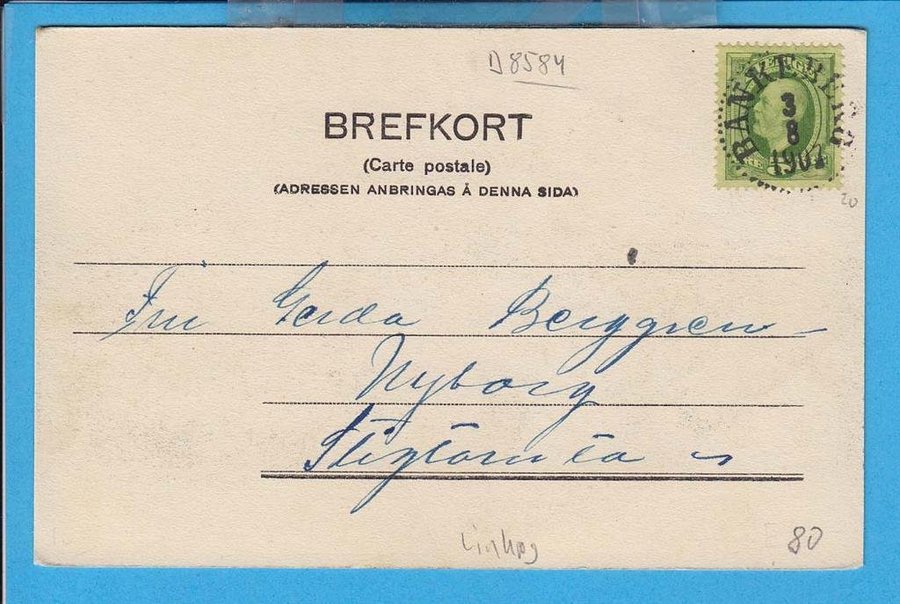 D 8584
BREFKORT
(Carte postale)
(ADRESSEN ANBRINGAS Å DENNA SIDA)
BANKEBERG
3
8
1907
20
Fru Gerda Berggren
Nyborg
Stigtomta
Linköpg
80